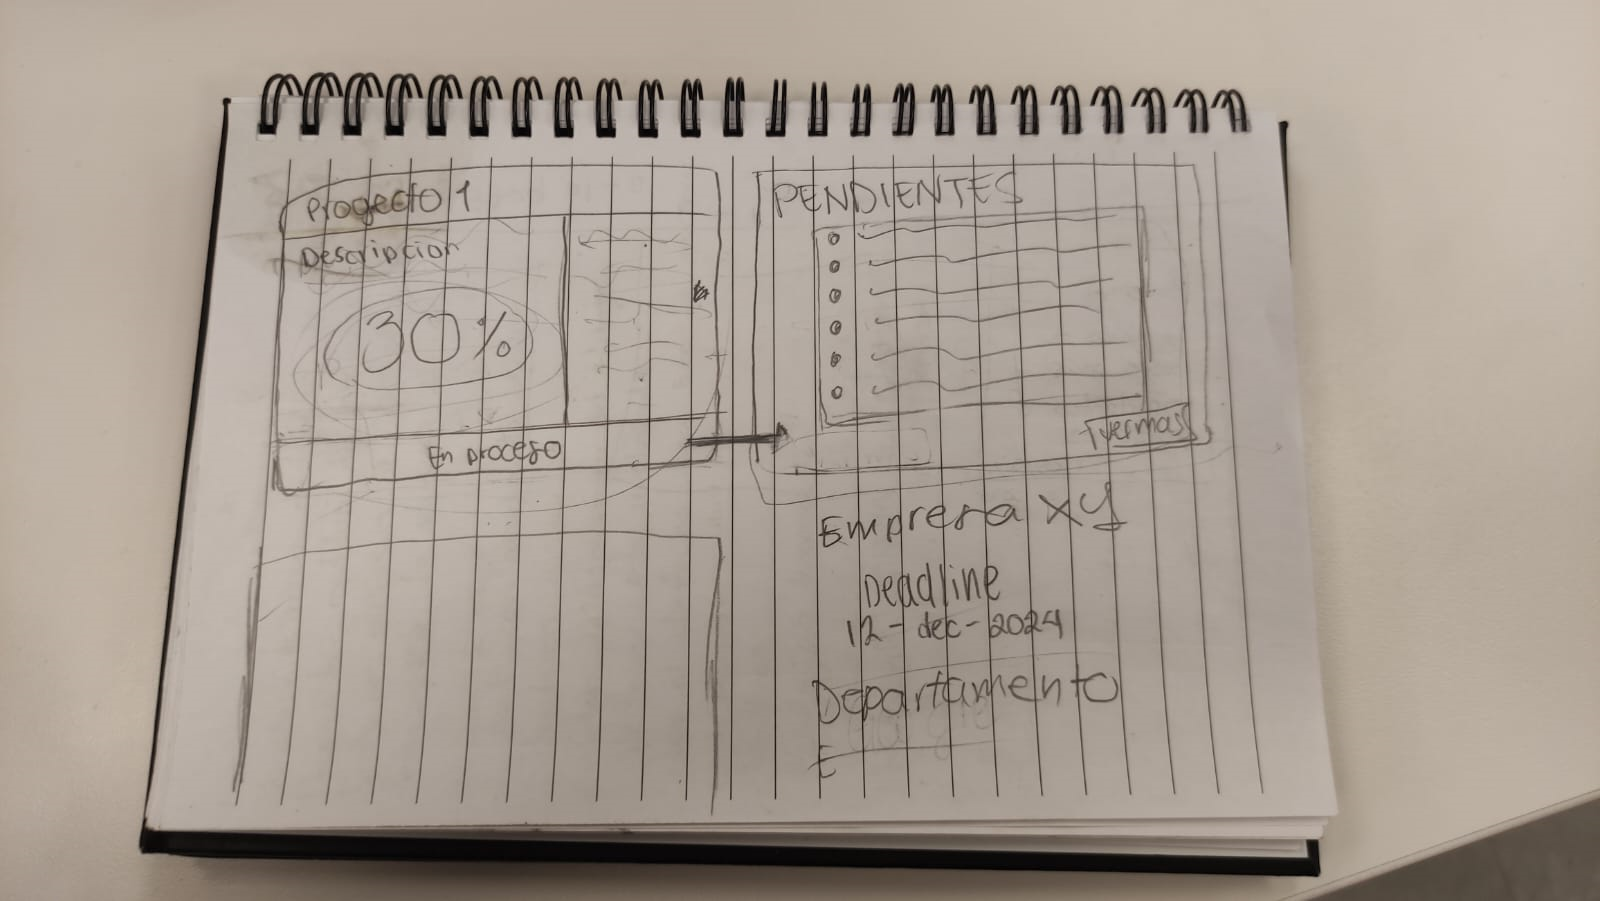 Progecto 1
Descripcion
30%
En proceso
PENDIENTES
vermas
Empresa xy
Deadline
12-dec-2024
Departamento
E